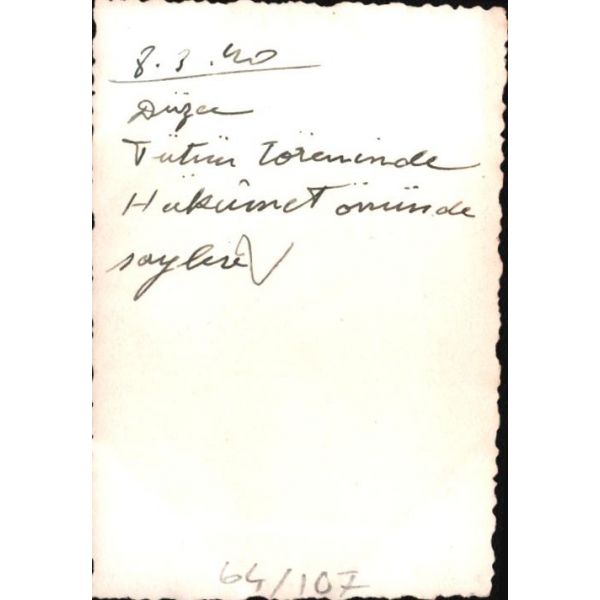 8.3.40
Düzce
Tütün töreninde
Hükûmet önünde
söylevi
64/107